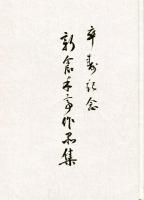 卒寿記念
新倉禾亭作品集